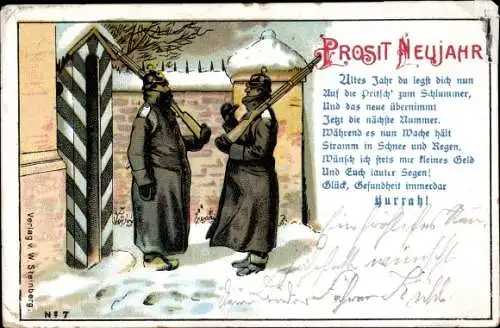 PROSIT NEUJAHR
Altes Jahr du legst dich nun
Auf die Pritsch' zum Schlummer,
Und das neue übernimmt
Jetzt die nächste Nummer.
Während es nun Wache hält
Stramm in Schnee und Regen,
Wünsch ich stets mir kleines Geld
Und Euch lauter Segen!
Glück, Gesundheit immerdar
Hurrah!
Ein fröhliches
wünscht
Bruder
Verlag v. W. Steinberg.
No 7